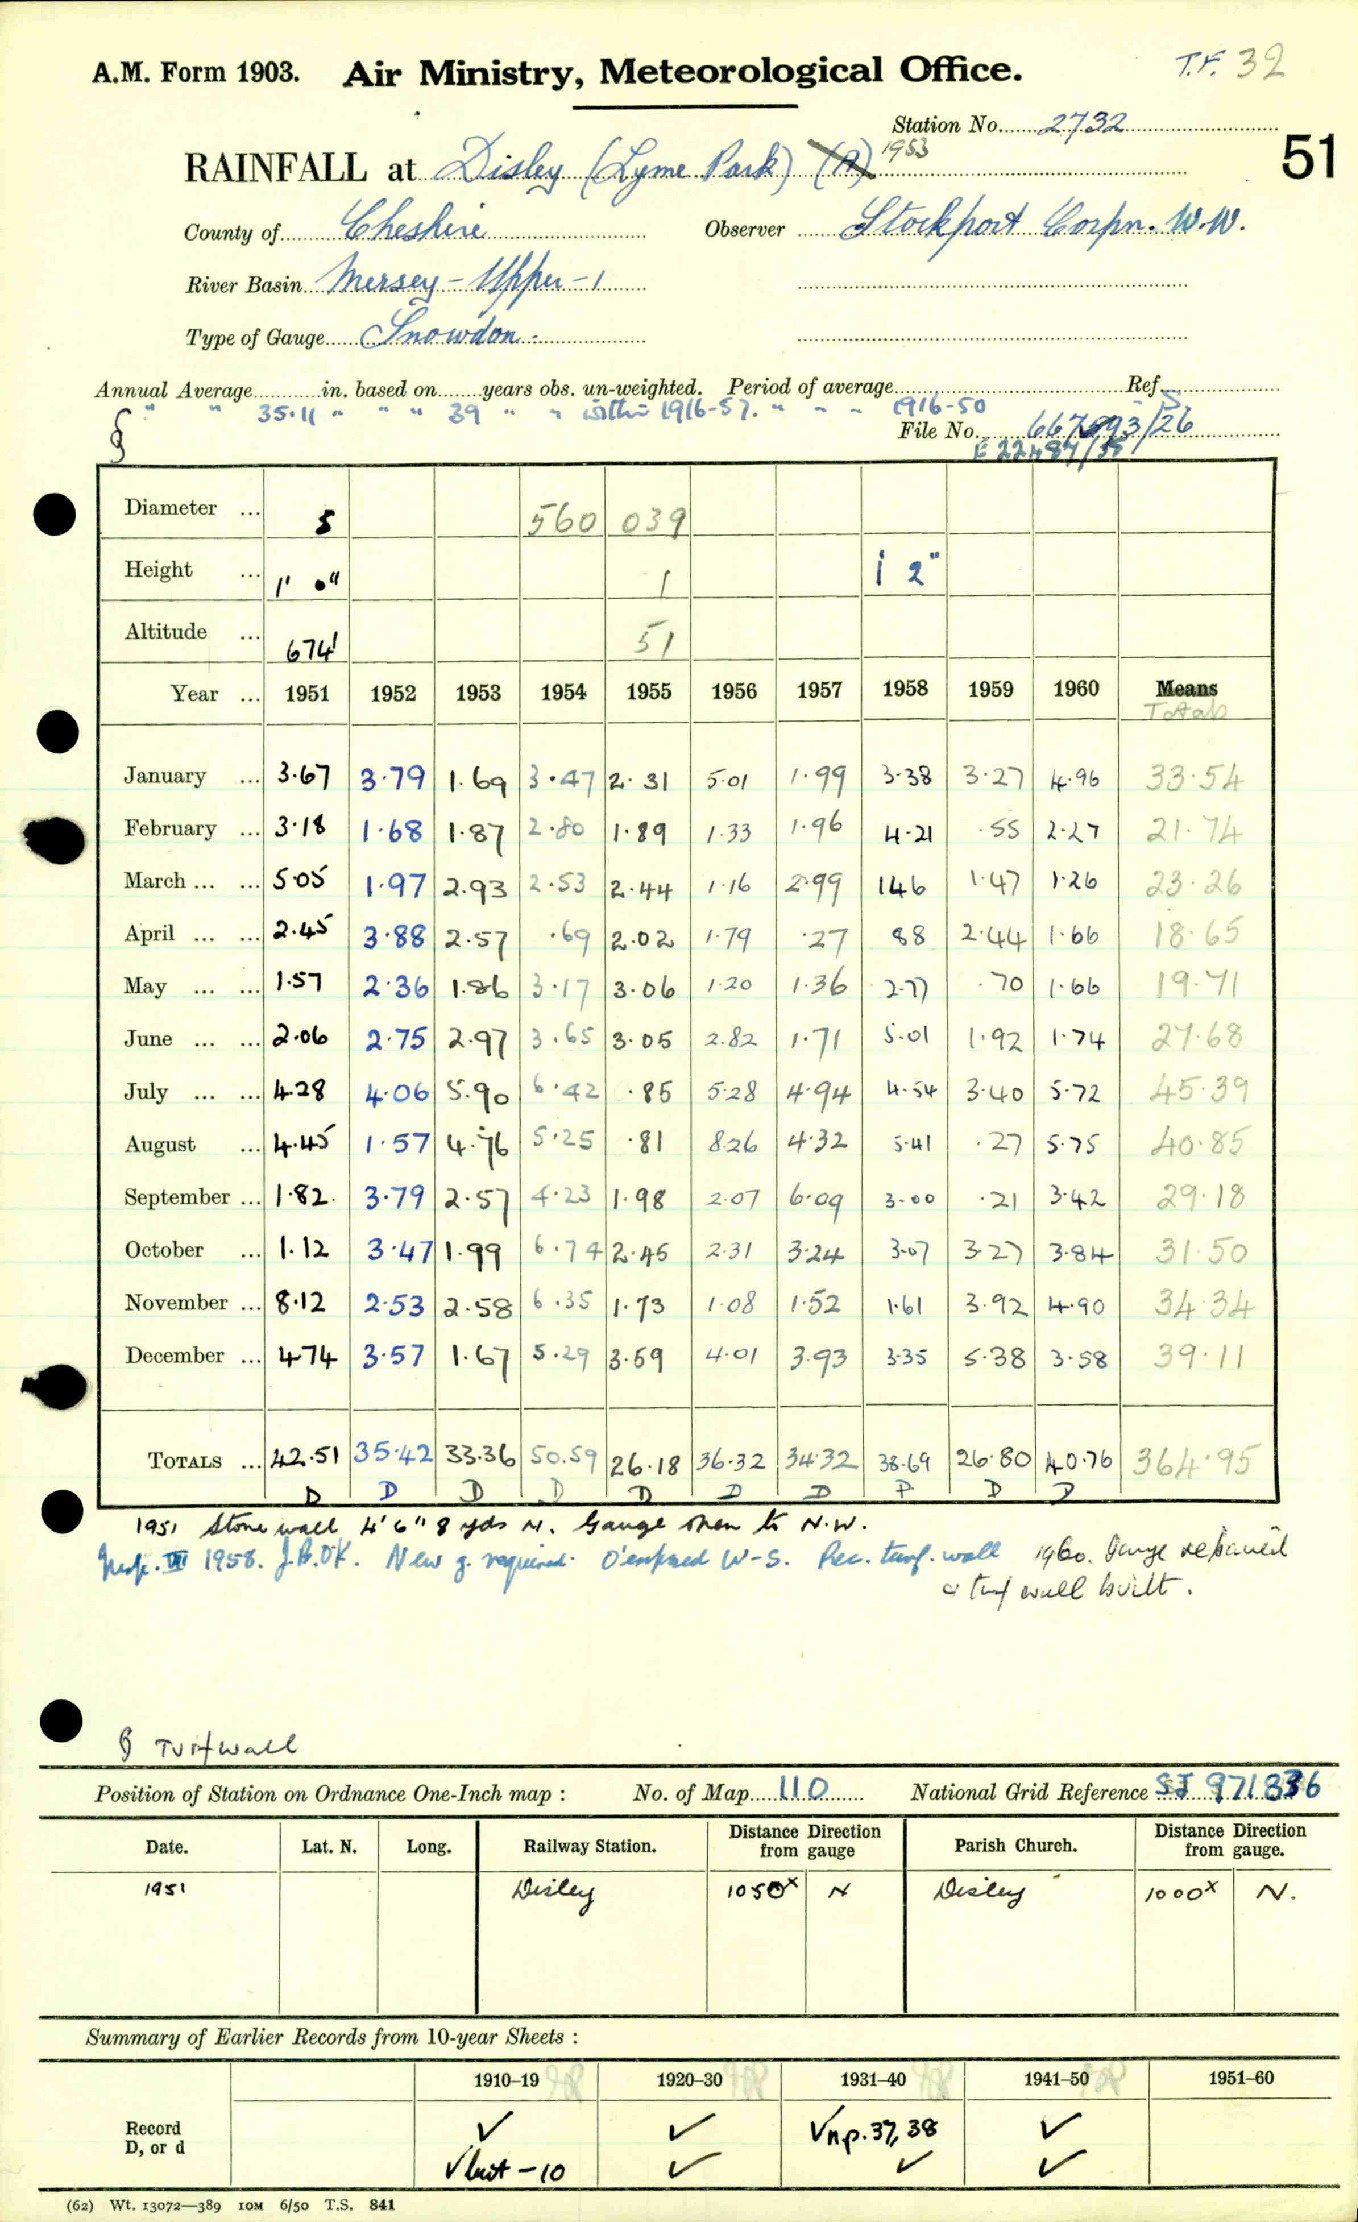 A.M. Form 1903. Air Ministry, Meteorological Office. T.F. 32
Station No. 2732
51
RAINFALL at Disley (Lyme Park) (A) 1953
County of Cheshire Observer Stockport Corpn. W.W.
River Basin Mersey - Upper - 1
Type of Gauge Snowdon.
Annual Average in. based on years obs. un-weighted. Period of average Ref. S
" " 35.11 " " " 39 " " within 1916-57. " " " 1916-50
§ File No. /26
E 22484/55
Diameter ... 5 560 039
Height ... 1' 0" 1 1 2"
Altitude ... 674' 51
Year ... 1951 1952 1953 1954 1955 1956 1957 1958 1959 1960 Means
Totals
January ... 3.67 3.79 1.69 3.47 2.31 5.01 1.99 3.38 3.27 4.96 33.54
February ... 3.18 1.68 1.87 2.80 1.89 1.33 1.96 4.21 .55 2.27 21.74
March ... ... 5.05 1.97 2.93 2.53 2.44 1.16 2.99 146 1.47 1.26 23.26
April ... ... 2.45 3.88 2.57 .69 2.02 1.79 .27 88 2.44 1.66 18.65
May ... ... 1.57 2.36 1.86 3.17 3.06 1.20 1.36 2.77 .70 1.66 19.71
June ... ... 2.06 2.75 2.97 3.65 3.05 2.82 1.71 5.01 1.92 1.74 27.68
July ... ... 4.28 4.06 5.90 6.42 .85 5.28 4.94 4.54 3.40 5.72 45.39
August ... 4.45 1.57 4.76 5.25 .81 8.26 4.32 5.41 .27 5.75 40.85
September ... 1.82 3.79 2.57 4.23 1.98 2.07 6.09 3.00 .21 3.42 29.18
October ... 1.12 3.47 1.99 6.74 2.45 2.31 3.24 3.07 3.27 3.84 31.50
November ... 8.12 2.53 2.58 6.35 1.73 1.08 1.52 1.61 3.92 4.90 34.34
December ... 4.74 3.57 1.67 5.29 3.59 4.01 3.93 3.35 5.38 3.58 39.11
TOTALS ... 42.51 35.42 33.36 50.59 26.18 36.32 34.32 38.69 26.80 40.76 364.95
D D D D D D D P D D
1951 Stone wall 4' 6" 8 yds N. Gauge open to N.W.
Insp. VII 1958. J.B.OK. New g. required. O'exposed W-S. Rec. turf. wall 1960. Gauge rebuilt
& turf wall built.
§ Turfwall
Position of Station on Ordnance One-Inch map : No. of Map 110 National Grid Reference SJ 971836
Date. Lat. N. Long. Railway Station. Distance from Direction gauge Parish Church. Distance from Direction gauge.
1951 Disley 1050x N Disley 1000x N.
Summary of Earlier Records from 10-year Sheets :
1910–19 1920–30 1931–40 1941–50 1951–60
Record ✓ ✓ ✓ n.p. 37, 38 ✓
D, or d ✓ but -10 ✓ ✓ ✓
(62) Wt. 13072—389 10M 6/50 T.S. 841